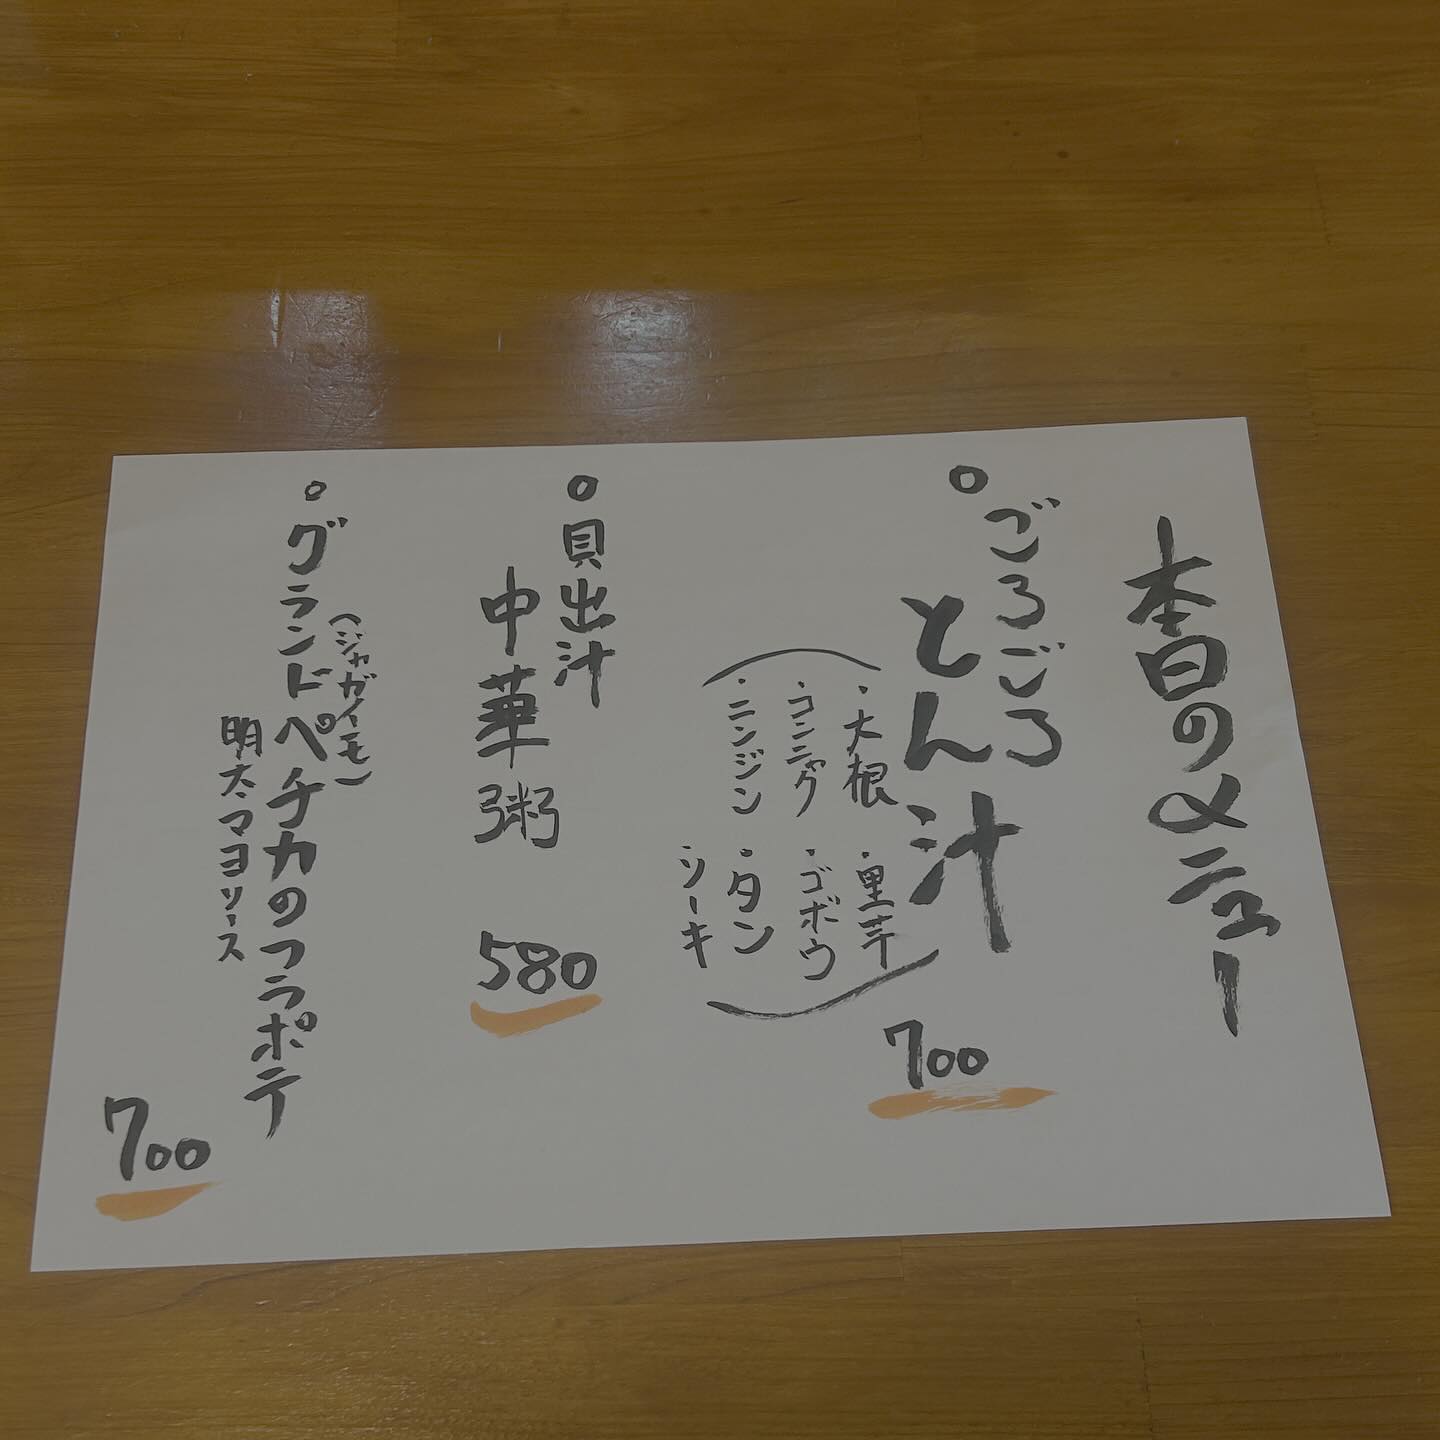 本日のメニュー
○ごろごろ
とん汁
(・大根 ・里芋
・コンニャク ・ゴボウ
・ニンジン ・タン
・ソーキ)
700
○貝出汁
中華粥
580
○グランドペチカのフラポテ
(ジャガイモ)
明太マヨソース
700